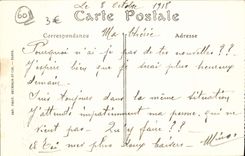 60
3€
Le 8 Octobre 1918
Carte Postale
Correspondance
Adresse
Ma thérèse
Pourquoi n'ai-je pas de tes nouvelles ??
J'espère bien que je serai plus heureux
demain.
Suis toujours dans la même situation
J'attends impatiemment ma perme, qui ne
vient pas. Qu'y faire ???
et à toi mes plus doux baisers